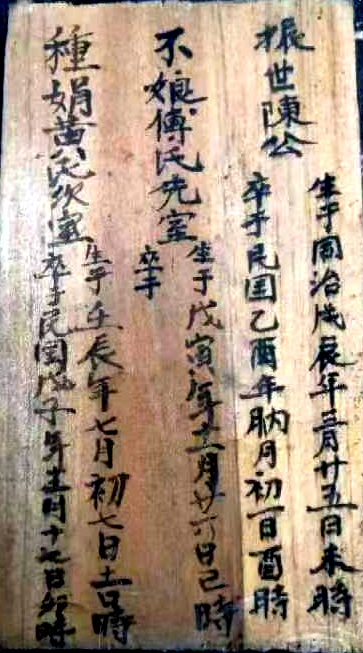 振世陳公
生于同治戊辰年三月廿五日未時
卒于民国乙酉年 月初一日酉時
不娘傅氏先室
生于戊寅年十二月廿六日己時
卒于
種娟黄氏次室
生于壬辰年七月初七日 時
卒于民国戊子年 月十七日卯時